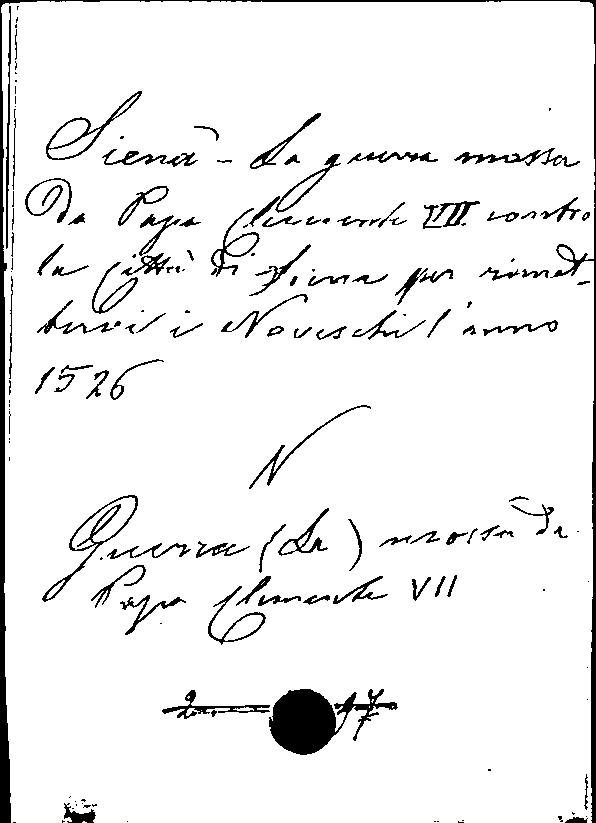 Siena - La guerra mossa
da Papa Clemente VII contro
la città di Siena per rimet-
tervi i Noveschi l'anno
1526
N
Guerra (La) mossa da
Papa Clemente VII